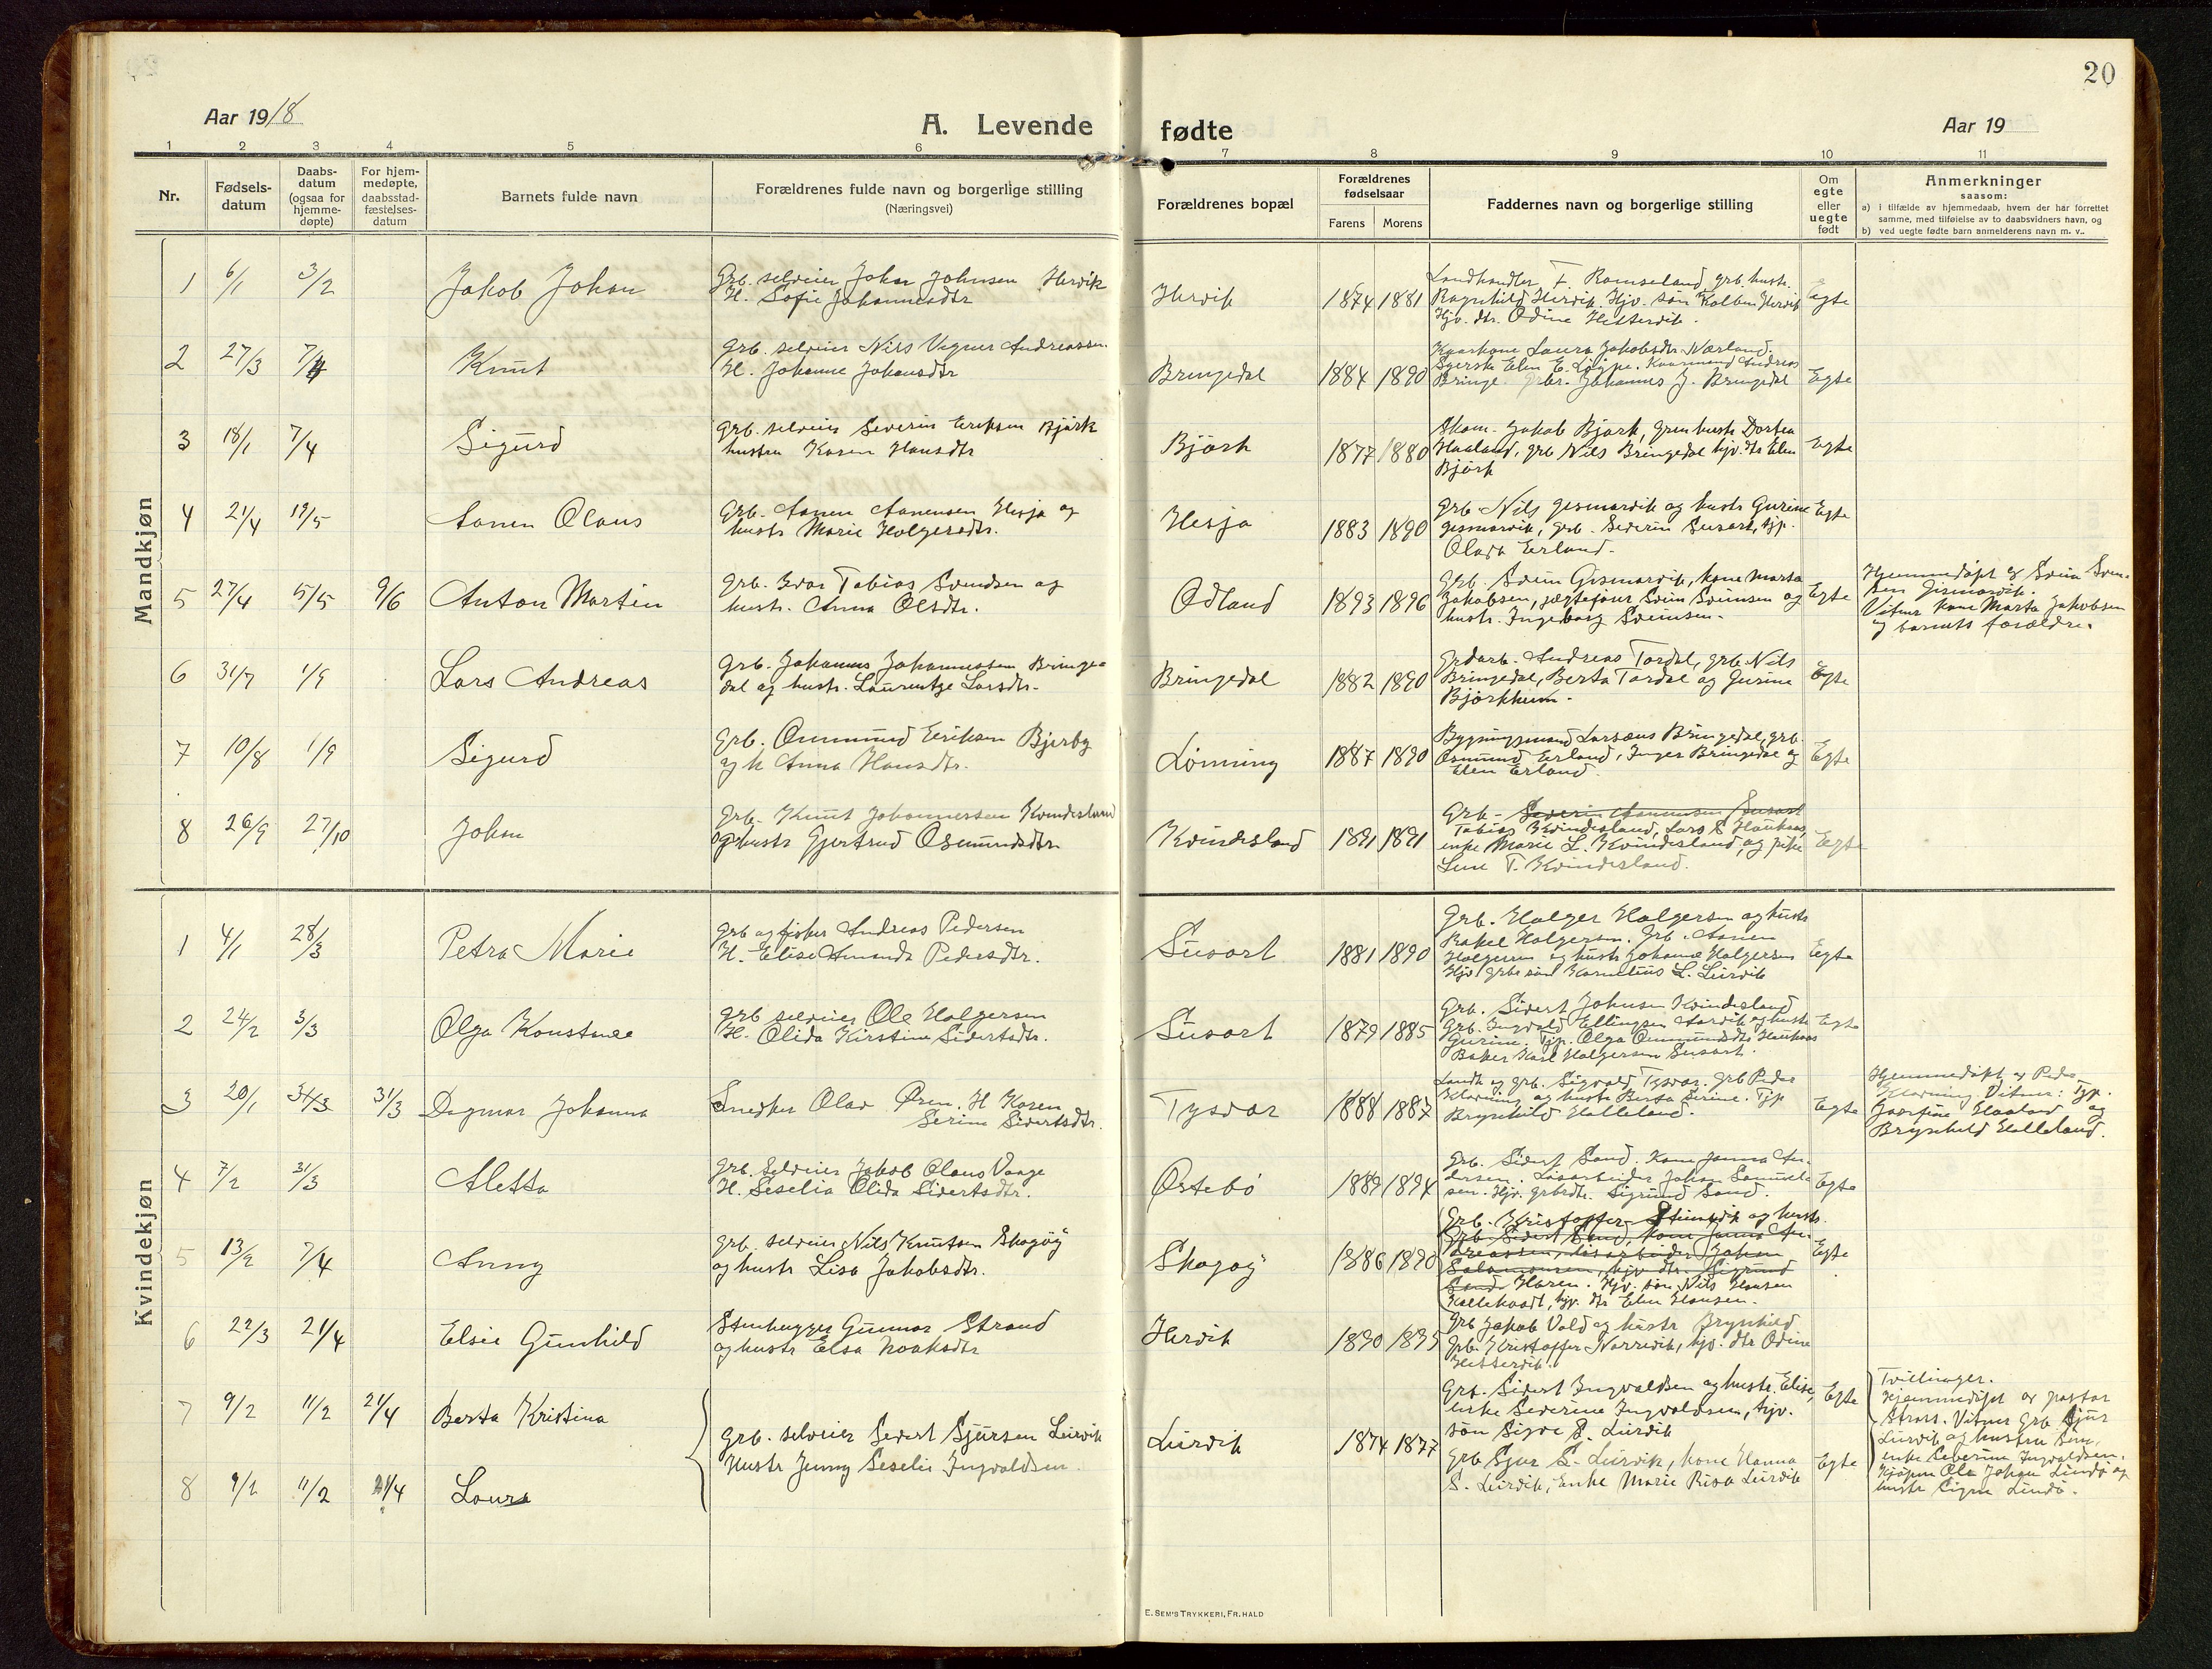 20
Aar 1918
A. Levende fødte
Aar 19
1 2 3 4 5 6 7 8 9 10 11
Nr.
Fødsels-
datum
Daabs-
datum
(ogsaa for
hjemme-
døpte)
For hjem-
medøpte,
daabsstad-
fæstelses-
datum
Barnets fulde navn
Forældrenes fulde navn og borgerlige stilling
(Næringsvei)
Forældrenes bopæl
Forældrenes
fødselsaar
Farens Morens
Faddernes navn og borgerlige stilling
Om
egte
eller
uegte
født
Anmerkninger
saasom:
a) i tilfælde av hjemmedaab, hvem der har forrettet
samme, med tilføielse av to daabsvidners navn, og
b) ved uegte fødte barn anmelderens navn m. v..
Mandkjøn
1 6/1 3/2 Jakob Johan
Grb. selveier Johan Johnsen Hervik
H. Sofie Johannesdtr
Hervik 1874 1881
Landhandler F. Ramseland, grb. hustr.
Ragnhild Hervik. Hjv. søn Kolben Hervik
Hjv. dtr. Odine Hettervik.
Egte
2 27/3 7/4 Knut
Grb. selveier Nils Vegner Andreassen.
H. Johanne Johansdtr
Bringedal 1884 1890
Kaarkone Laura Jakobsdtr Nærland.
Syerske Elen E. Kaarmand Andreas
Bringe. Johannes J. Bringedal
Egte
3 18/1 7/4 Sigurd
Grb. selveier Severin Eriksen Bjørk
hustru Karen Hansdtr
Bjørk 1877 1880
Skom. Jakob Bjørk, Dortea
Haaland, grb Nils Bringedal hjv. dtr Elen
Bjørk
Egte
4 21/4 19/5 Aanen Olaus
Grb. Aanen Aanensen Hesja og
hustr Marie Holgersdtr.
Hesja 1883 1890
Grb Nils Gismarvik og hustr Gurine
Gismarvik, grb. Severin Susort, tjp.
Olava Erland.
Egte
5 27/4 5/5 9/6 Anton Martin
Grb. Ivar Tobias Svendsen og
hustr. Anna Olsdtr.
Odland 1893 1896
Grb. Svein Gismarvik, kone Marta
Jakobsen, jægtefører Svein Sveinsen og
hustr. Ingeborg Sveinsen.
Egte
Hjemmedøpt af Svein Svein-
sen Gismarvik.
Vitner kone Marta Jakobsen
og barnets forældre.
6 31/7 1/9 Lars Andreas
Grb. Johannes Johannessen Bringe-
dal og hustr. Laurentze Larsdtr.
Bringedal 1882 1890
Grdarb. Andreas Tordal, grb. Nils
Bringedal, Berta Tordal og Gurine
Bjørkheim.
Egte
7 10/8 1/9 Sigurd
Grb. Ommund Eriksen Bjerby
og h Anna Hansdtr.
Lønning 1887 1890
Bygningsmand Larsæus Bringedal, grb.
Osmund Erland, Inger Bringedal og
Elen Erland.
Egte
8 26/9 27/10 Johan
Grb. Knut Johannessen Kvindesland
og hustr Gjertrud Osmundsdtr.
Kvindesland 1891 1891
Grb. Severin Aanensen Susort
Tobias Kvindesland, Lars S Haukaas,
enke Marie L. Kvindesland, og pike
Lene T. Kvindesland.
Egte
Kvindekjøn
1 4/1 28/3 Petra Marie
Grb og fisker Andreas Pedersen
H. Elise Amanda Pedersdtr.
Susort 1881 1890
Grb. Holger Holgersen og hustr
Rakel Holgersen. Grb. Aanen
Holgersen og hustr Johanne Holgersen
Hjv. grbs søn Kornelius L. Lurvik
Egte
2 24/2 3/3 Olga Konstance
Grb selveier Ole Holgersen
H. Olida Kirstine Sivertsdtr.
Susort 1879 1885
Grb. Sivert Johnsen Kvindesland
Grb. Ingvald Ellingsen og hustr
Gurine. Tjp. Olga Ommundsdtr Haukaas
Baker Karl Holgersen Susort.
Egte
3 20/1 31/3 31/3 Dagmar Johanna
Snedker Olav Øren. H Karen
Serine Sivertsdtr.
Tysvær 1888 1887
Landh og grb. Sigvald Tysvær. Grb Peder
og hustr Berta Serine. Tjp
Brynhild Halleland.
Egte
Hjemmedøpt av Peder
Vitner: Tjp.
Josefine Haaland og
Brynhild Halleland.
4 7/2 31/3 Aletta
Grb. Selveier Jakob Olaus Vaage
H. Seselia Olida Sivertsdtr.
Ørtebø 1889 1894
Grb. Sivert Sand. Kone Janna An-
dersen. Løsarbeider Johan Samuel-
sen. Hjv. grbsdtr. Sigrund Sand.
Egte
5 13/2 7/4 Anny
Grb. selveier Nils Knutsen Skogøy
og hustr Lisa Jakobsdtr.
Skogøy 1886 1890
Grb. Kristoffer Stunsvik og hustr.
Grb. Sivert Sand, kone Janna An-
dreassen, løsarbeider Johan
Salamonsen, hjv dtr. Sigrund
Sand Karen. Hjv. søn Nils Hansen
Kallekodt, hjp. dtr Elen Hansen.
Egte
6 22/3 21/4 Elsie Gunhild
Stenhugger Gunnar Strand
og hustr Elsa Noaksdtr
Hervik 1890 1895
Grb Jakob Vold og hustr Brynhild
Grb. Kristoffer Narrevik, hjv. dtr Odine
Hettervik.
7 9/2 11/2 21/4 Berta Kristina
8 9/2 11/2 21/4 Laura
Grb. selveier Sivert Sjursen Lurvik
Hustr Jenny Seselie Ingvaldsen.
Lurvik 1874 1877
Grb. Sivert Ingvaldsen og hustr. Elise,
enke Severine Ingvaldsen, hjv.
søn Sigve S. Lurvik
Egte
Grb Sjur S. Lurvik, kone Hanna
S. Lurvik, Enke Marie Risa Lurvik
Egte
Tvillinger.
Hjemmedøpt av pastor
Strass. Vitner Grb Sjur
Lurvik og hustru
enke Severine Ingvaldsen.
Ole Johan Lindø og
hustr Signe Lindø.
E. SEM'S TRYKKERI, FR.HALD